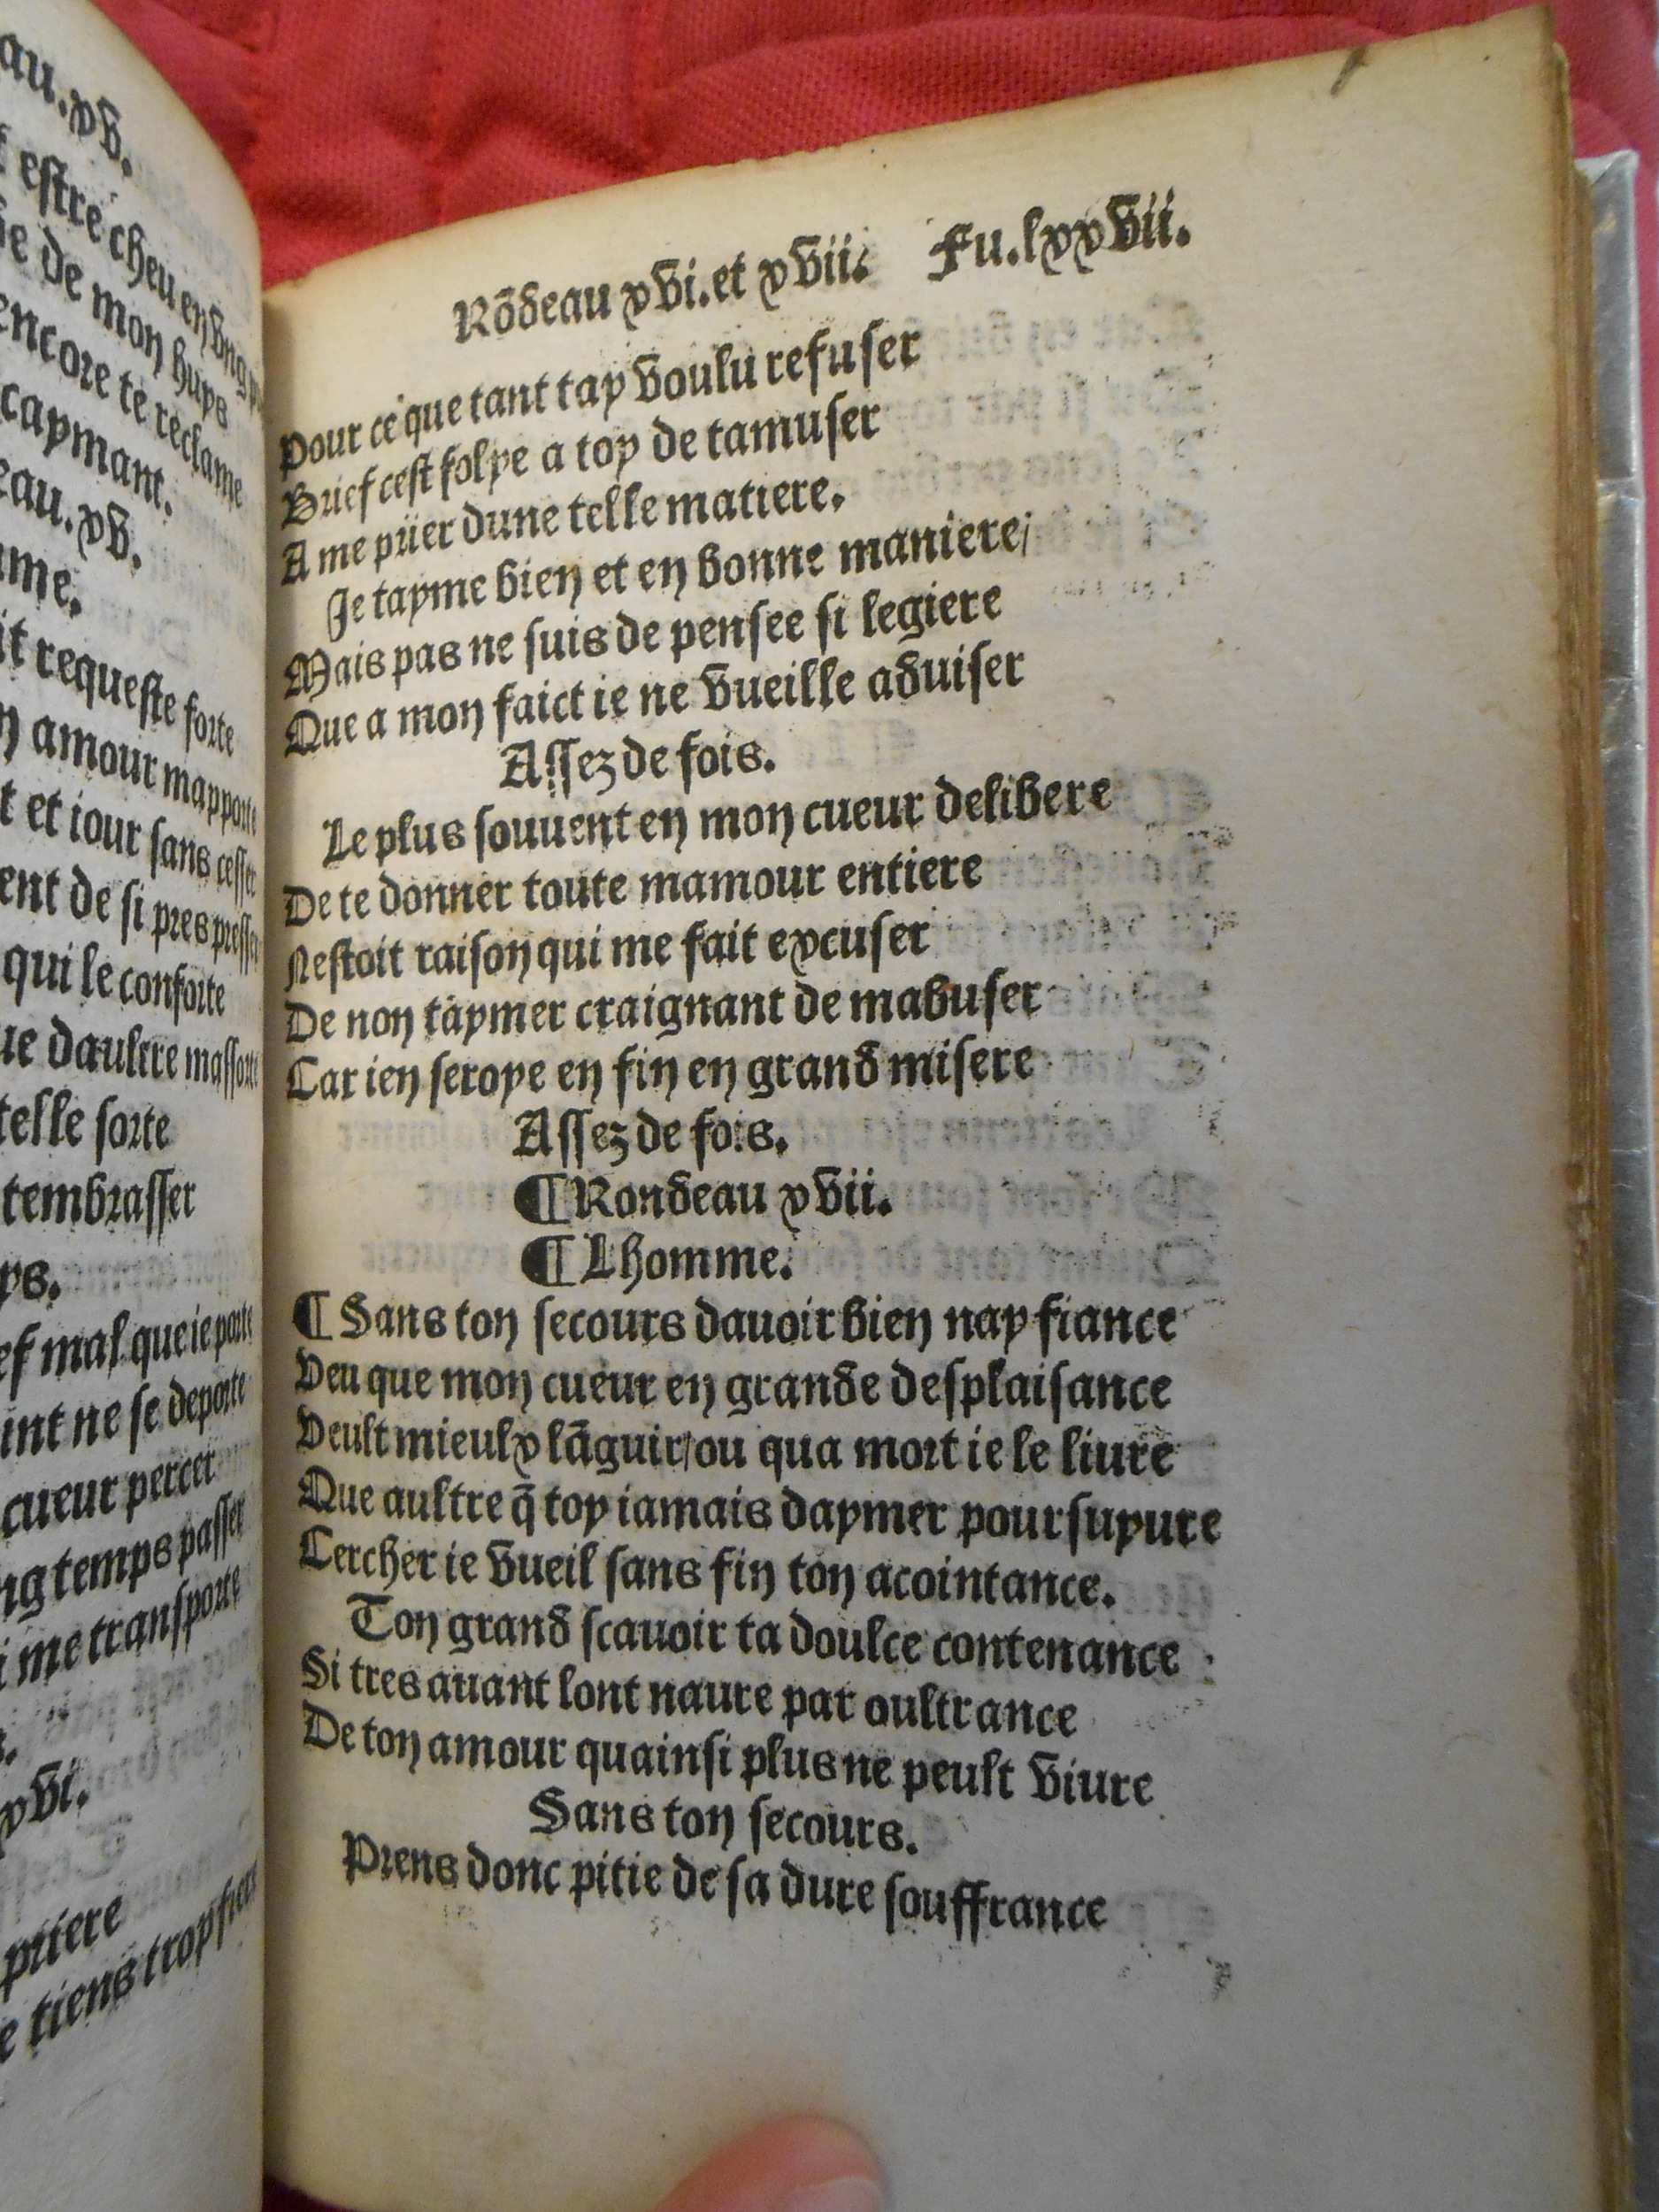 au.xv.
estre cheu en vng
de mon huys
encore te reclame
caymant.
eau.xv.
me.
it requeste forte
n amour mapporte
t et iour sans cesser
ent de si pres presser
qui le conforte
ue daultre massorte
telle sorte
tembrasser
ys.
ef mal que ie porte
int ne se deporte
cueur percer
ng temps passer
i me transporte
xvi.
priere
e tiens trop fiere
Rõdeau xvi.et xvii. Fu.lxxvii.
Pour ce que tant tay voulu refuser
Brief cest folye a toy de tamuser
A me prier dune telle matiere.
Je tayme bien et en bonne maniere/
Mais pas ne suis de pensee si legiere
Que a mon faict ie ne vueille aduiser
Assez de fois.
Le plus souuent en mon cueur delibere
De te donner toute mamour entiere
Nestoit raison qui me fait excuser
De non taymer craignant de mabuser
Car ien seroye en fin en grand misere
Assez de fois.
¶Rondeau xvii.
¶Lhomme.
¶Sans ton secours dauoir bien nay fiance
Veu que mon cueur en grande desplaisance
Veult mieulx lãguir/ou qua mort ie le liure
Que aultre q̃ toy iamais daymer poursuyure
Cercher ie vueil sans fin ton acointance.
Ton grand scauoir ta doulce contenance
Si tres auant lont naure par oultrance
De ton amour quainsi plus ne peult viure
Sans ton secours.
Prens donc pitie de sa dure souffrance